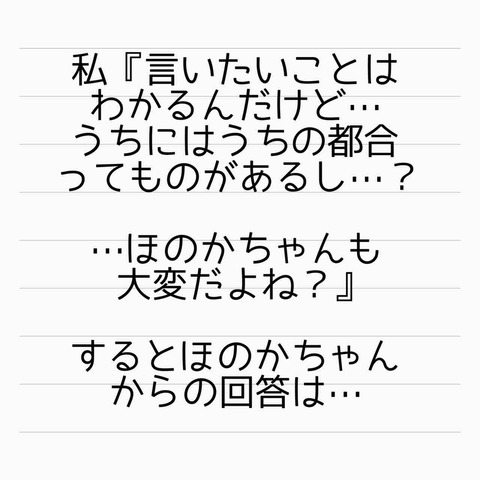 私『言いたいことは
わかるんだけど…
うちにはうちの都合
ってものがあるし…？
…ほのかちゃんも
大変だよね？』
するとほのかちゃん
からの回答は…